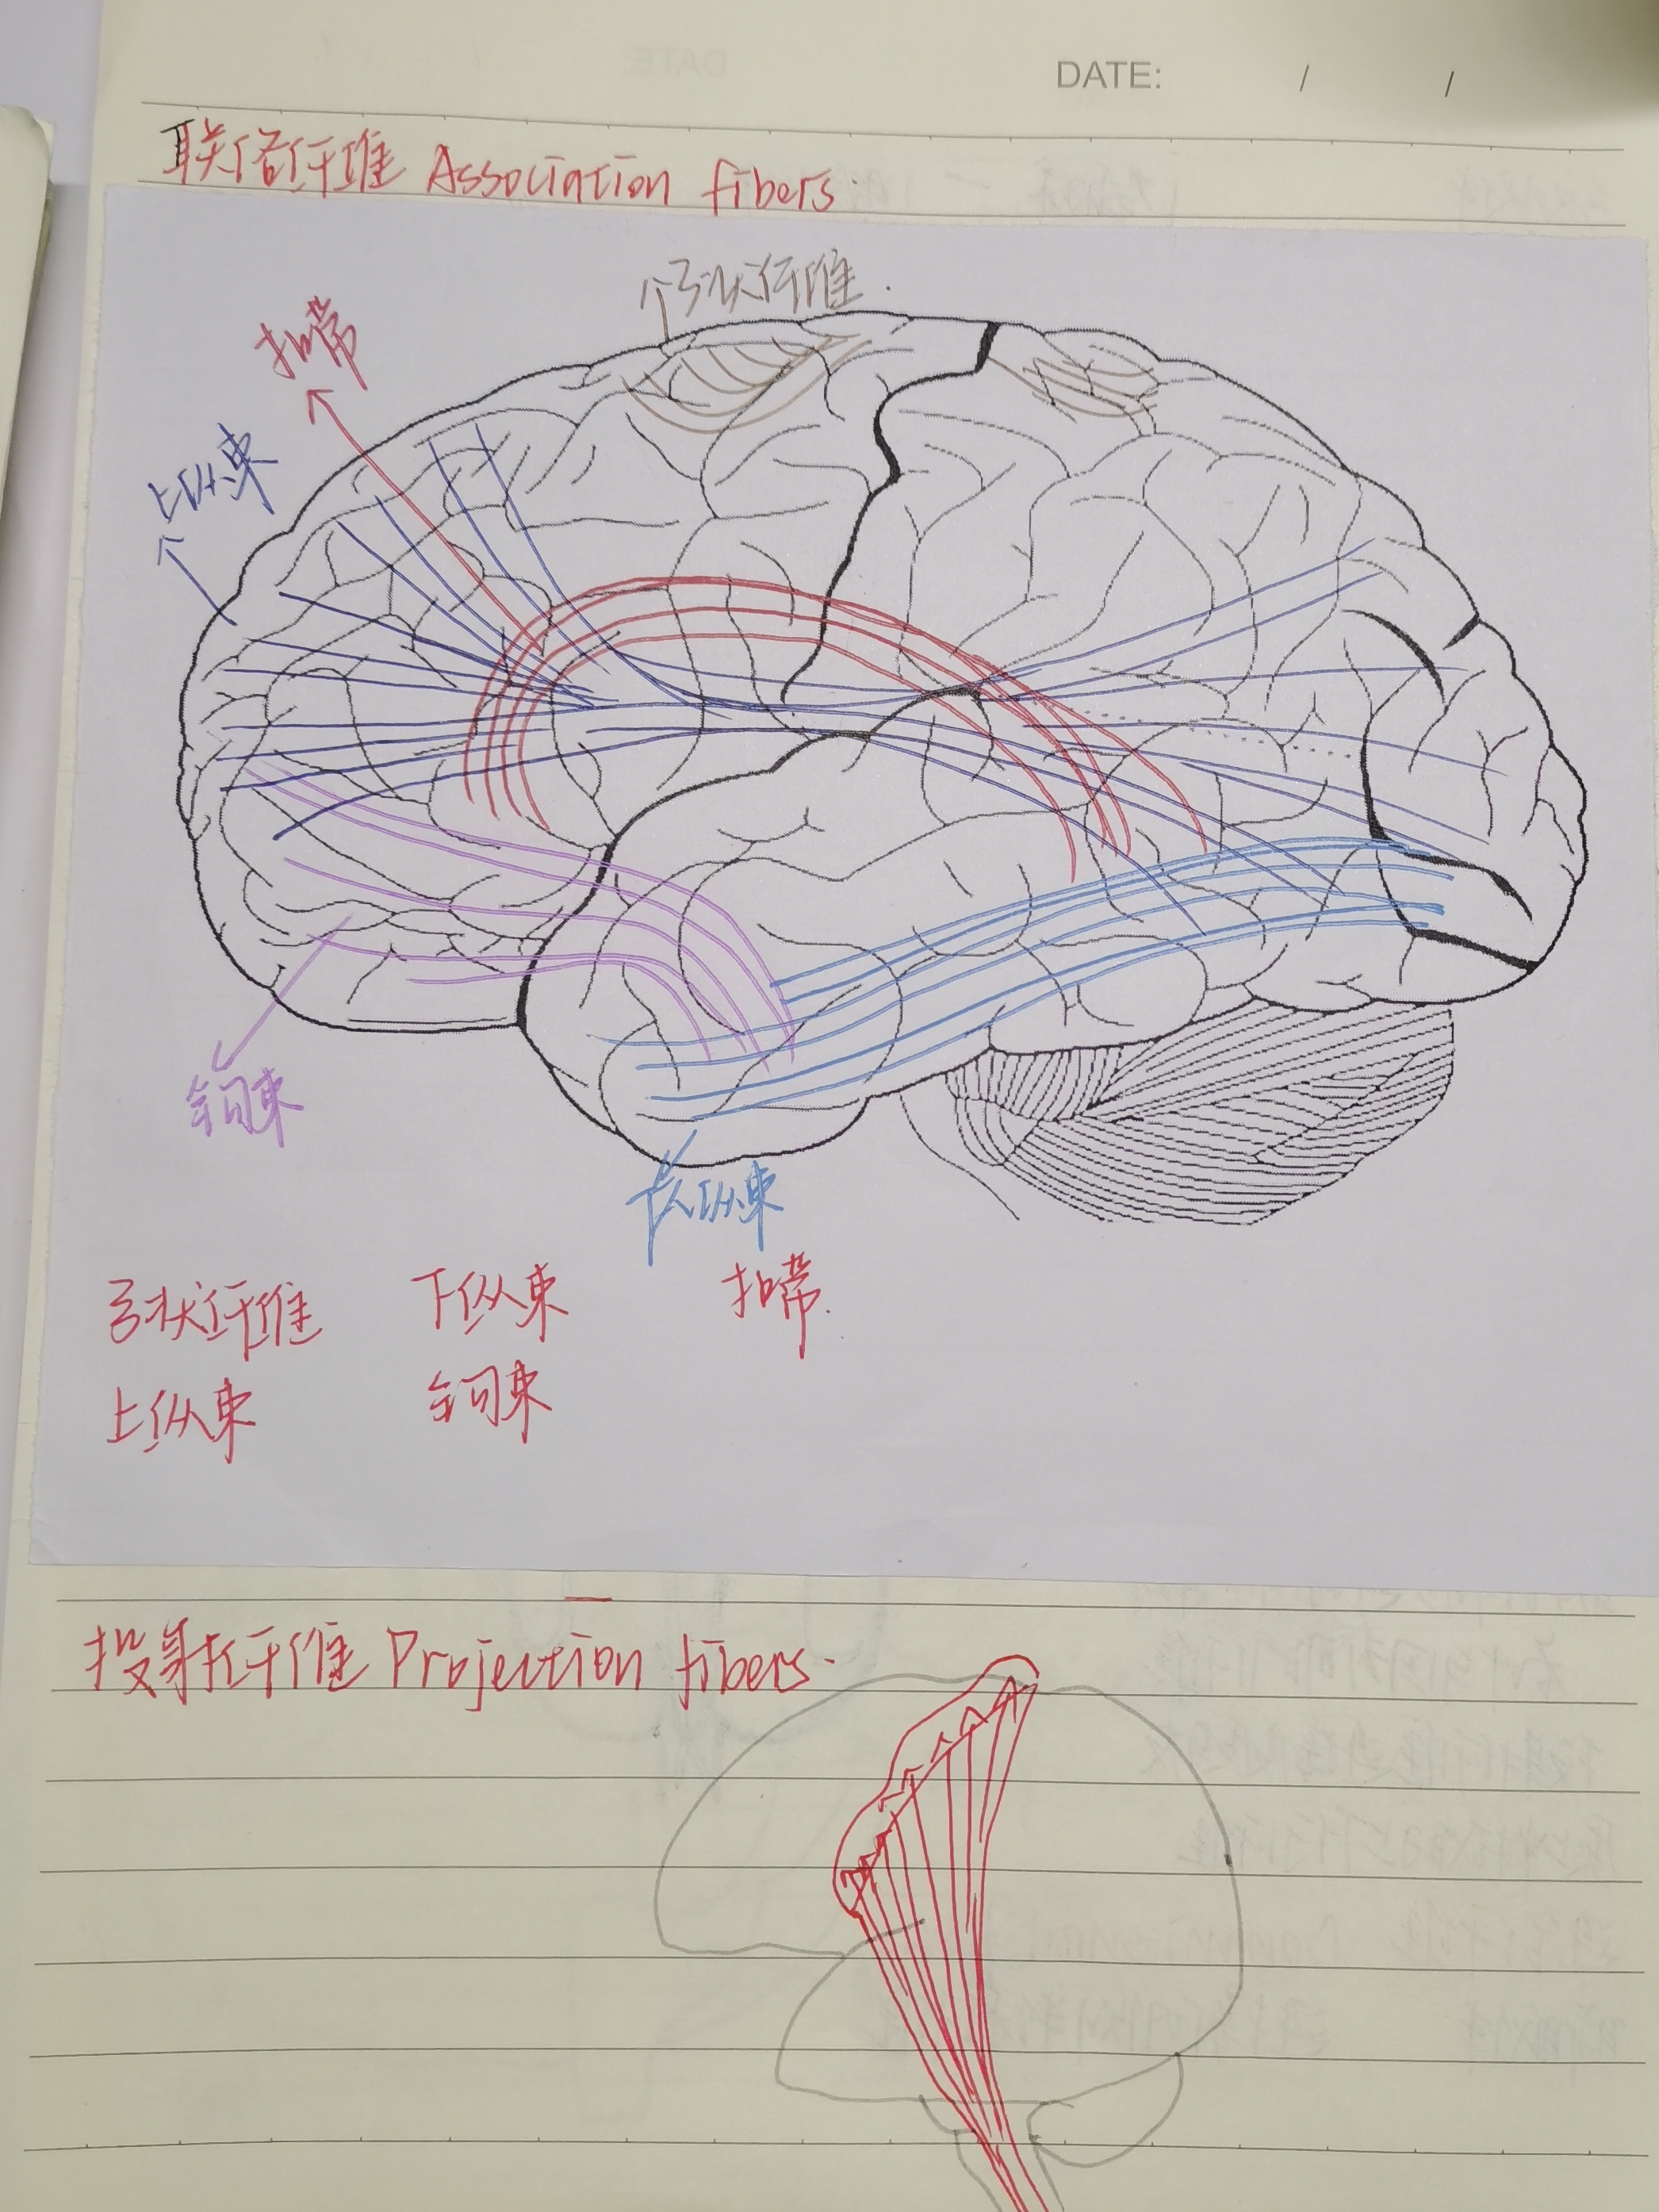 DATE: / /
联络纤维 Association fibers.
弓状纤维.
扣带
上纵束
钩束
下纵束
弓状纤维 下纵束 扣带.
上纵束 钩束
投射纤维 Projection fibers.